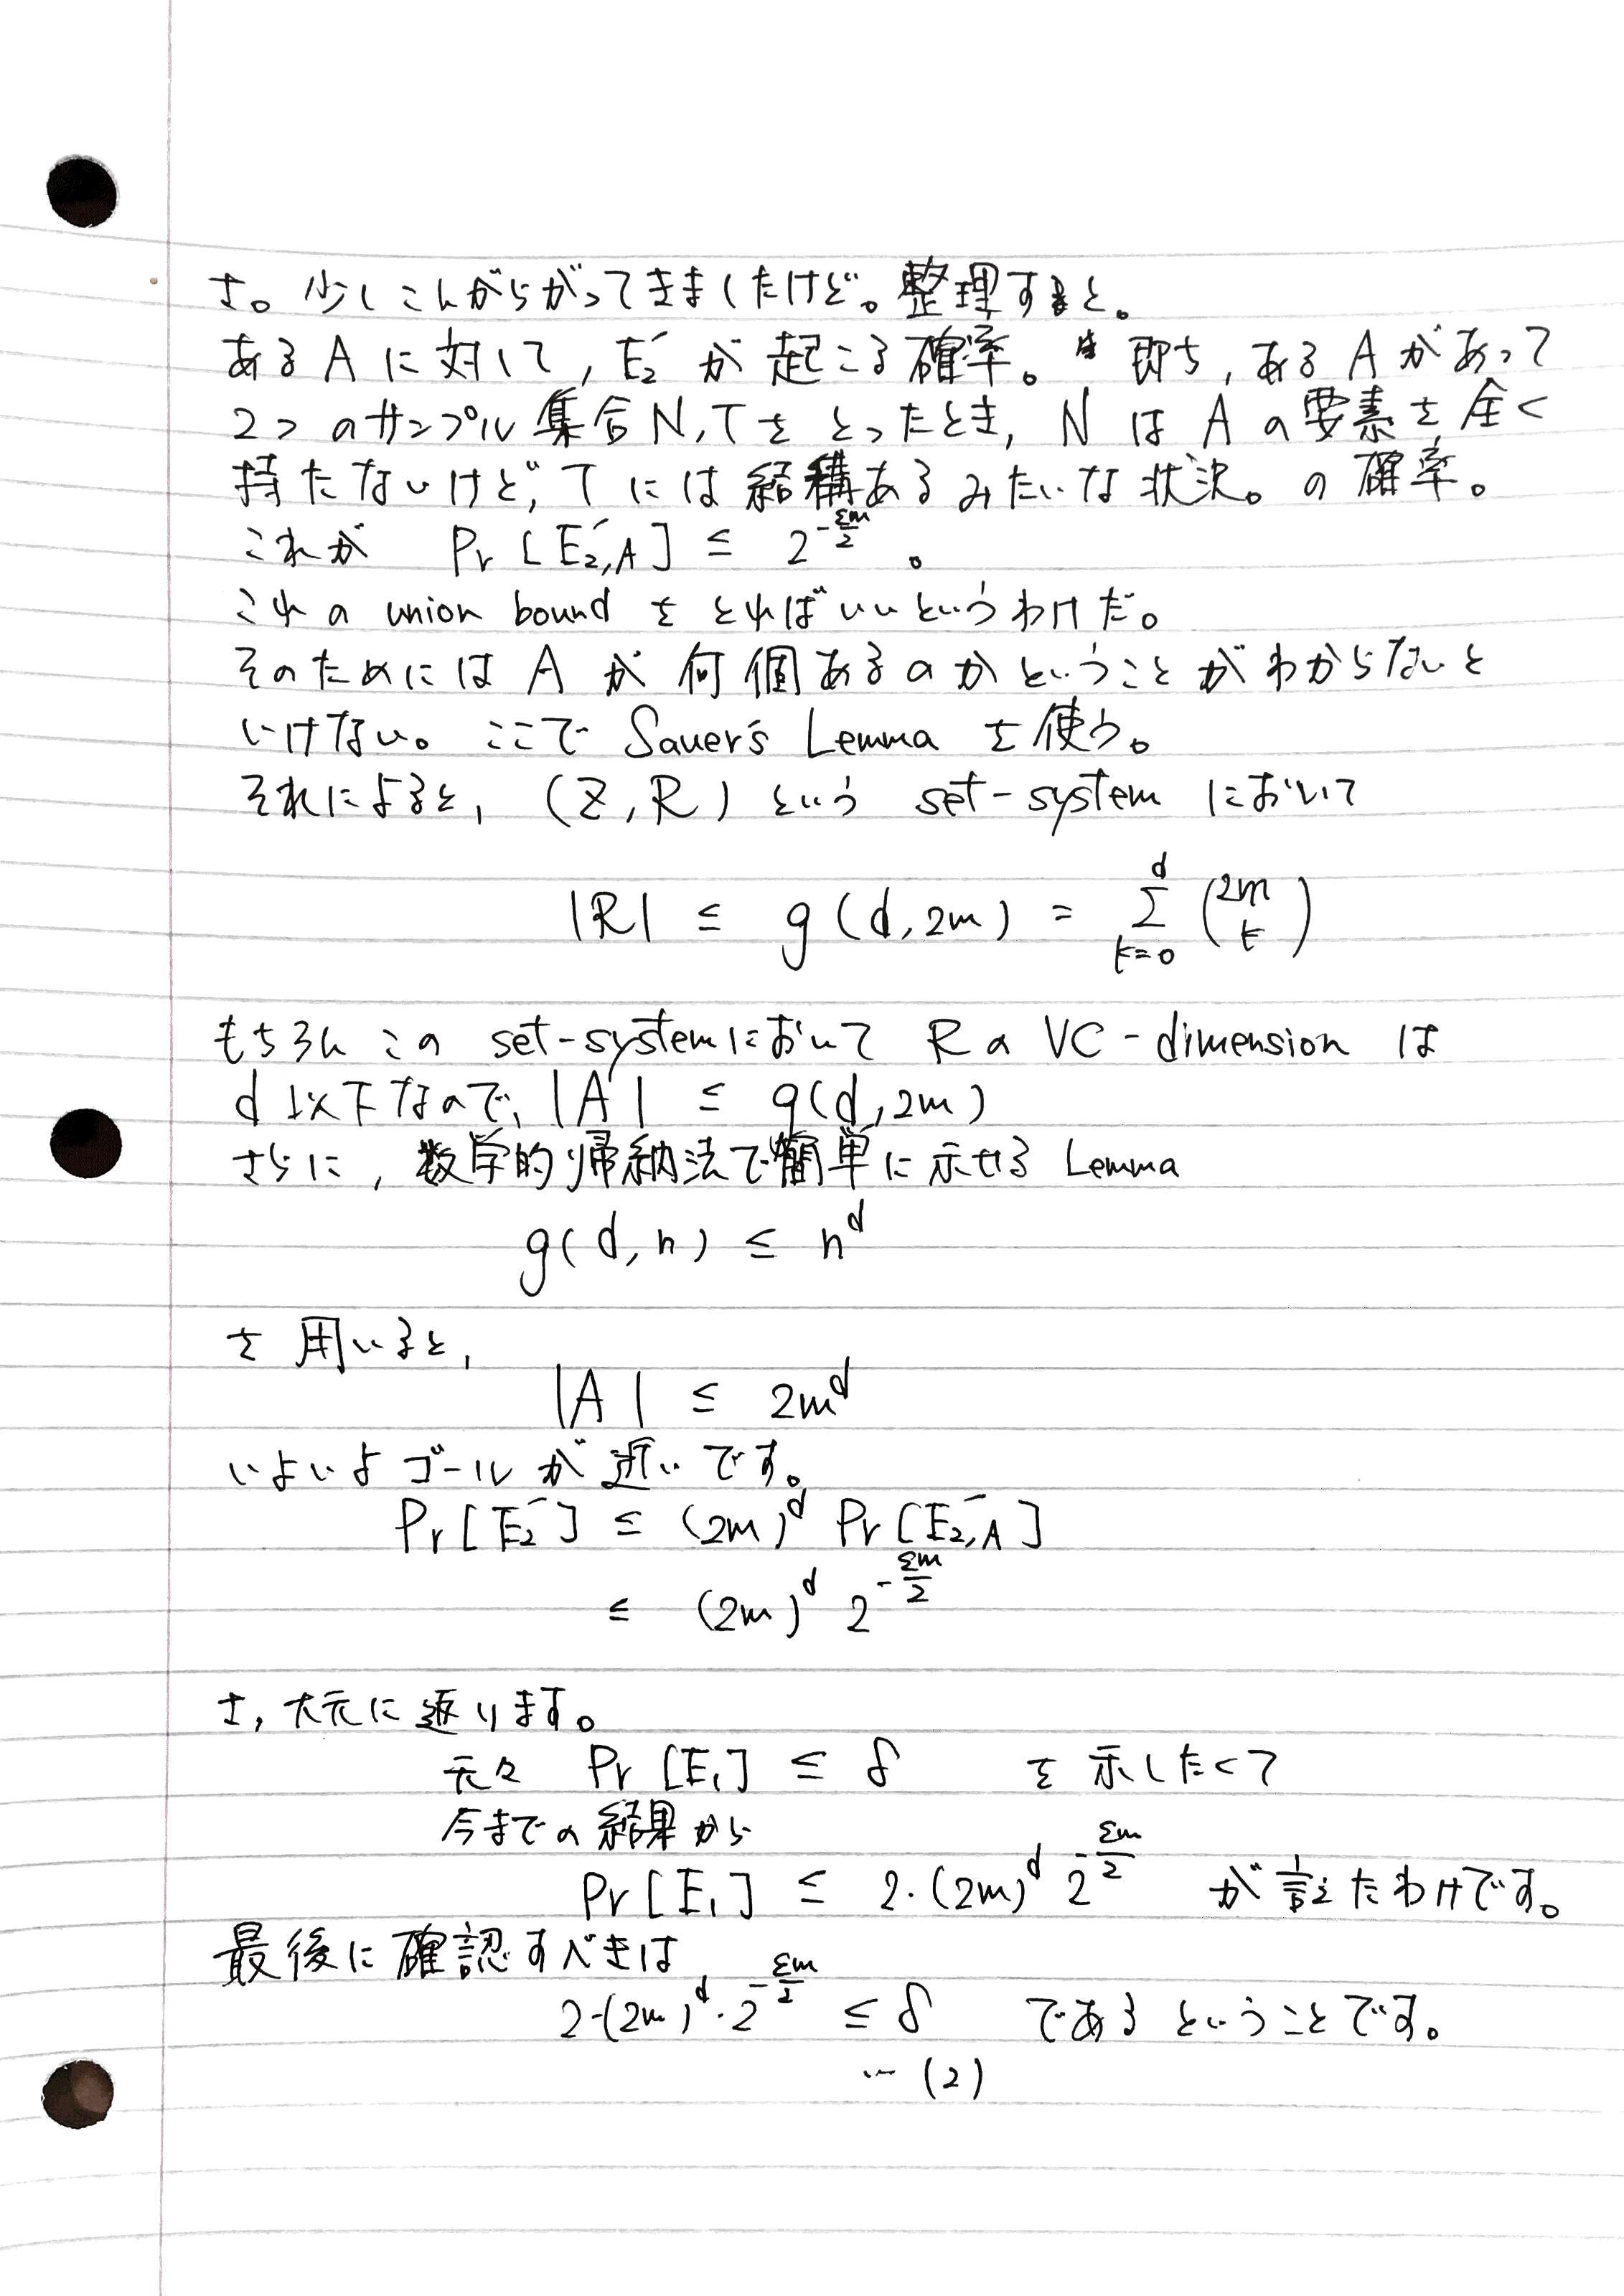 さ。少しこんがらがってきましたけど。整理すると。
あるAに対して, E₂' が起こる確率。即ち, あるAがあって
2つのサンプル集合N,Tをとったとき, NはAの要素を全く
持たないけど, Tには結構あるみたいな状況。の確率。
これが Pr[E₂,A'] ≤ 2^{-εm/2} 。
これの union bound をとればいいというわけだ。
そのためにはAが何個あるのかということがわからないと
いけない。ここで Sauer's Lemma を使う。
それによると, (Z,R) という set-system において
|R| ≤ g(d,2m) = Σ_{k=0}^{d} (2m k)
もちろんこの set-systemにおいて RのVC-dimension は
d以下なので, |A| ≤ g(d,2m)
さらに, 数学的帰納法で簡単に示せる Lemma
g(d,n) ≤ n^d
を用いると,
|A| ≤ 2m^d
いよいよゴールが近いです。
Pr[E₂'] ≤ (2m)^d Pr[E₂,A']
≤ (2m)^d 2^{-εm/2}
さ, 大元に返ります。
元々 Pr[E₁] ≤ δ を示したくて
今までの結果から
Pr[E₁] ≤ 2・(2m)^d 2^{-εm/2} が言えたわけです。
最後に確認すべきは
2・(2m)^d・2^{-εm/2} ≤ δ であるということです。
… (2)